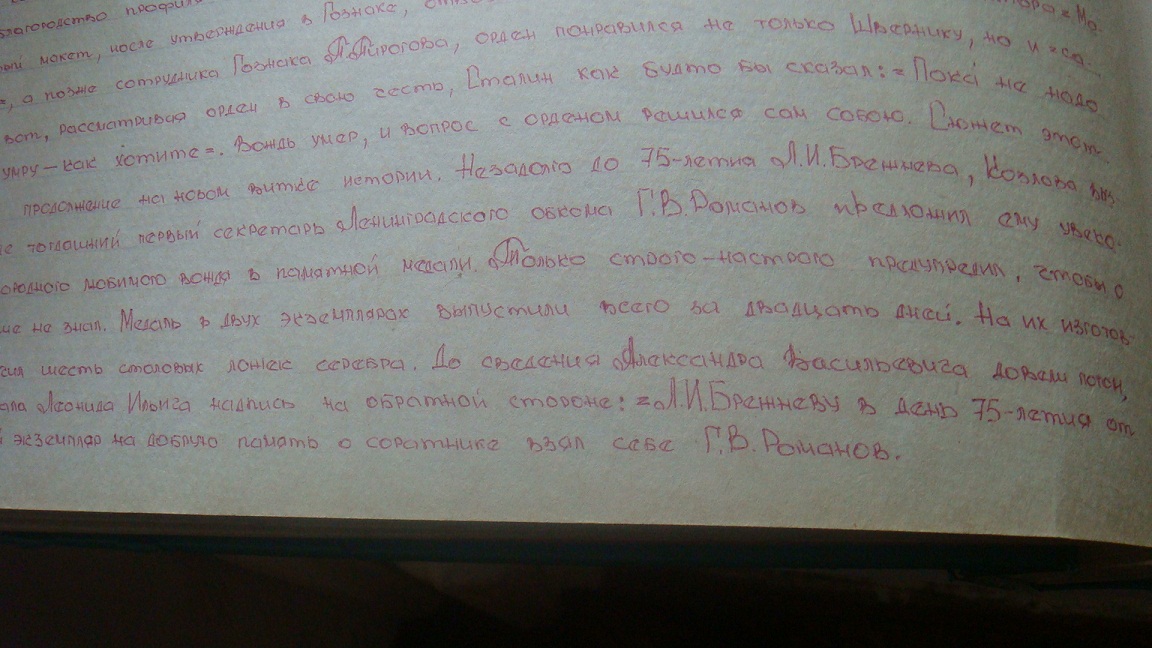 благородство профиля
макет, после утверждения в Гознаке,
=, а позже сотрудника Гознака П.Пирогова, орден понравился не только Швернику, но и =са-
вот, рассматривая орден в свою честь, Сталин как будто бы сказал: =Пока не надо
умру – как хотите=. Вождь умер, и вопрос с орденом решился сам собою. Сюжет этот
продолжение на новом витке истории. Незадолго до 75-летия Л.И.Брежнева, Козлова выз
тогдашний первый секретарь Ленинградского обкома Г.В.Романов предложил ему увеко-
любимого вождя в памятной медали. Только строго-настрого предупредил, чтобы о
не знал. Медаль в двух экземплярах выпустили всего за двадцать дней. На их изготов-
шесть столовых ложек серебра. До сведения Александра Васильевича довели потом,
Леонида Ильича надпись на обратной стороне: =Л.И.Брежневу в день 75-летия от
экземпляр на добрую память о соратнике взял себе Г.В.Романов.